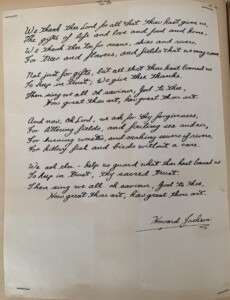 We thank thee Lord for all that thou hast given us,
The gifts of life and love and food and home.
We thank thee too for moons, skies and rivers,
For trees and flowers, and fields that we may roam.
Not just for gifts, but all that thou hast loaned us
To keep in trust, We give thee thanks.
Then sing we all oh saviour, God to thee,
How great thou art, how great thou art.
And now, Oh Lord, we ask for thy forgiveness,
For littering fields, and fouling sea and air,
For burning woods, and making sewers of rivers,
For killing fish and birds without a care.
We ask thee - help us guard what thou hast loaned us
To keep in trust, thy sacred trust.
Then sing we all oh saviour, God to thee,
How great thou art, how great thou art.
Howard